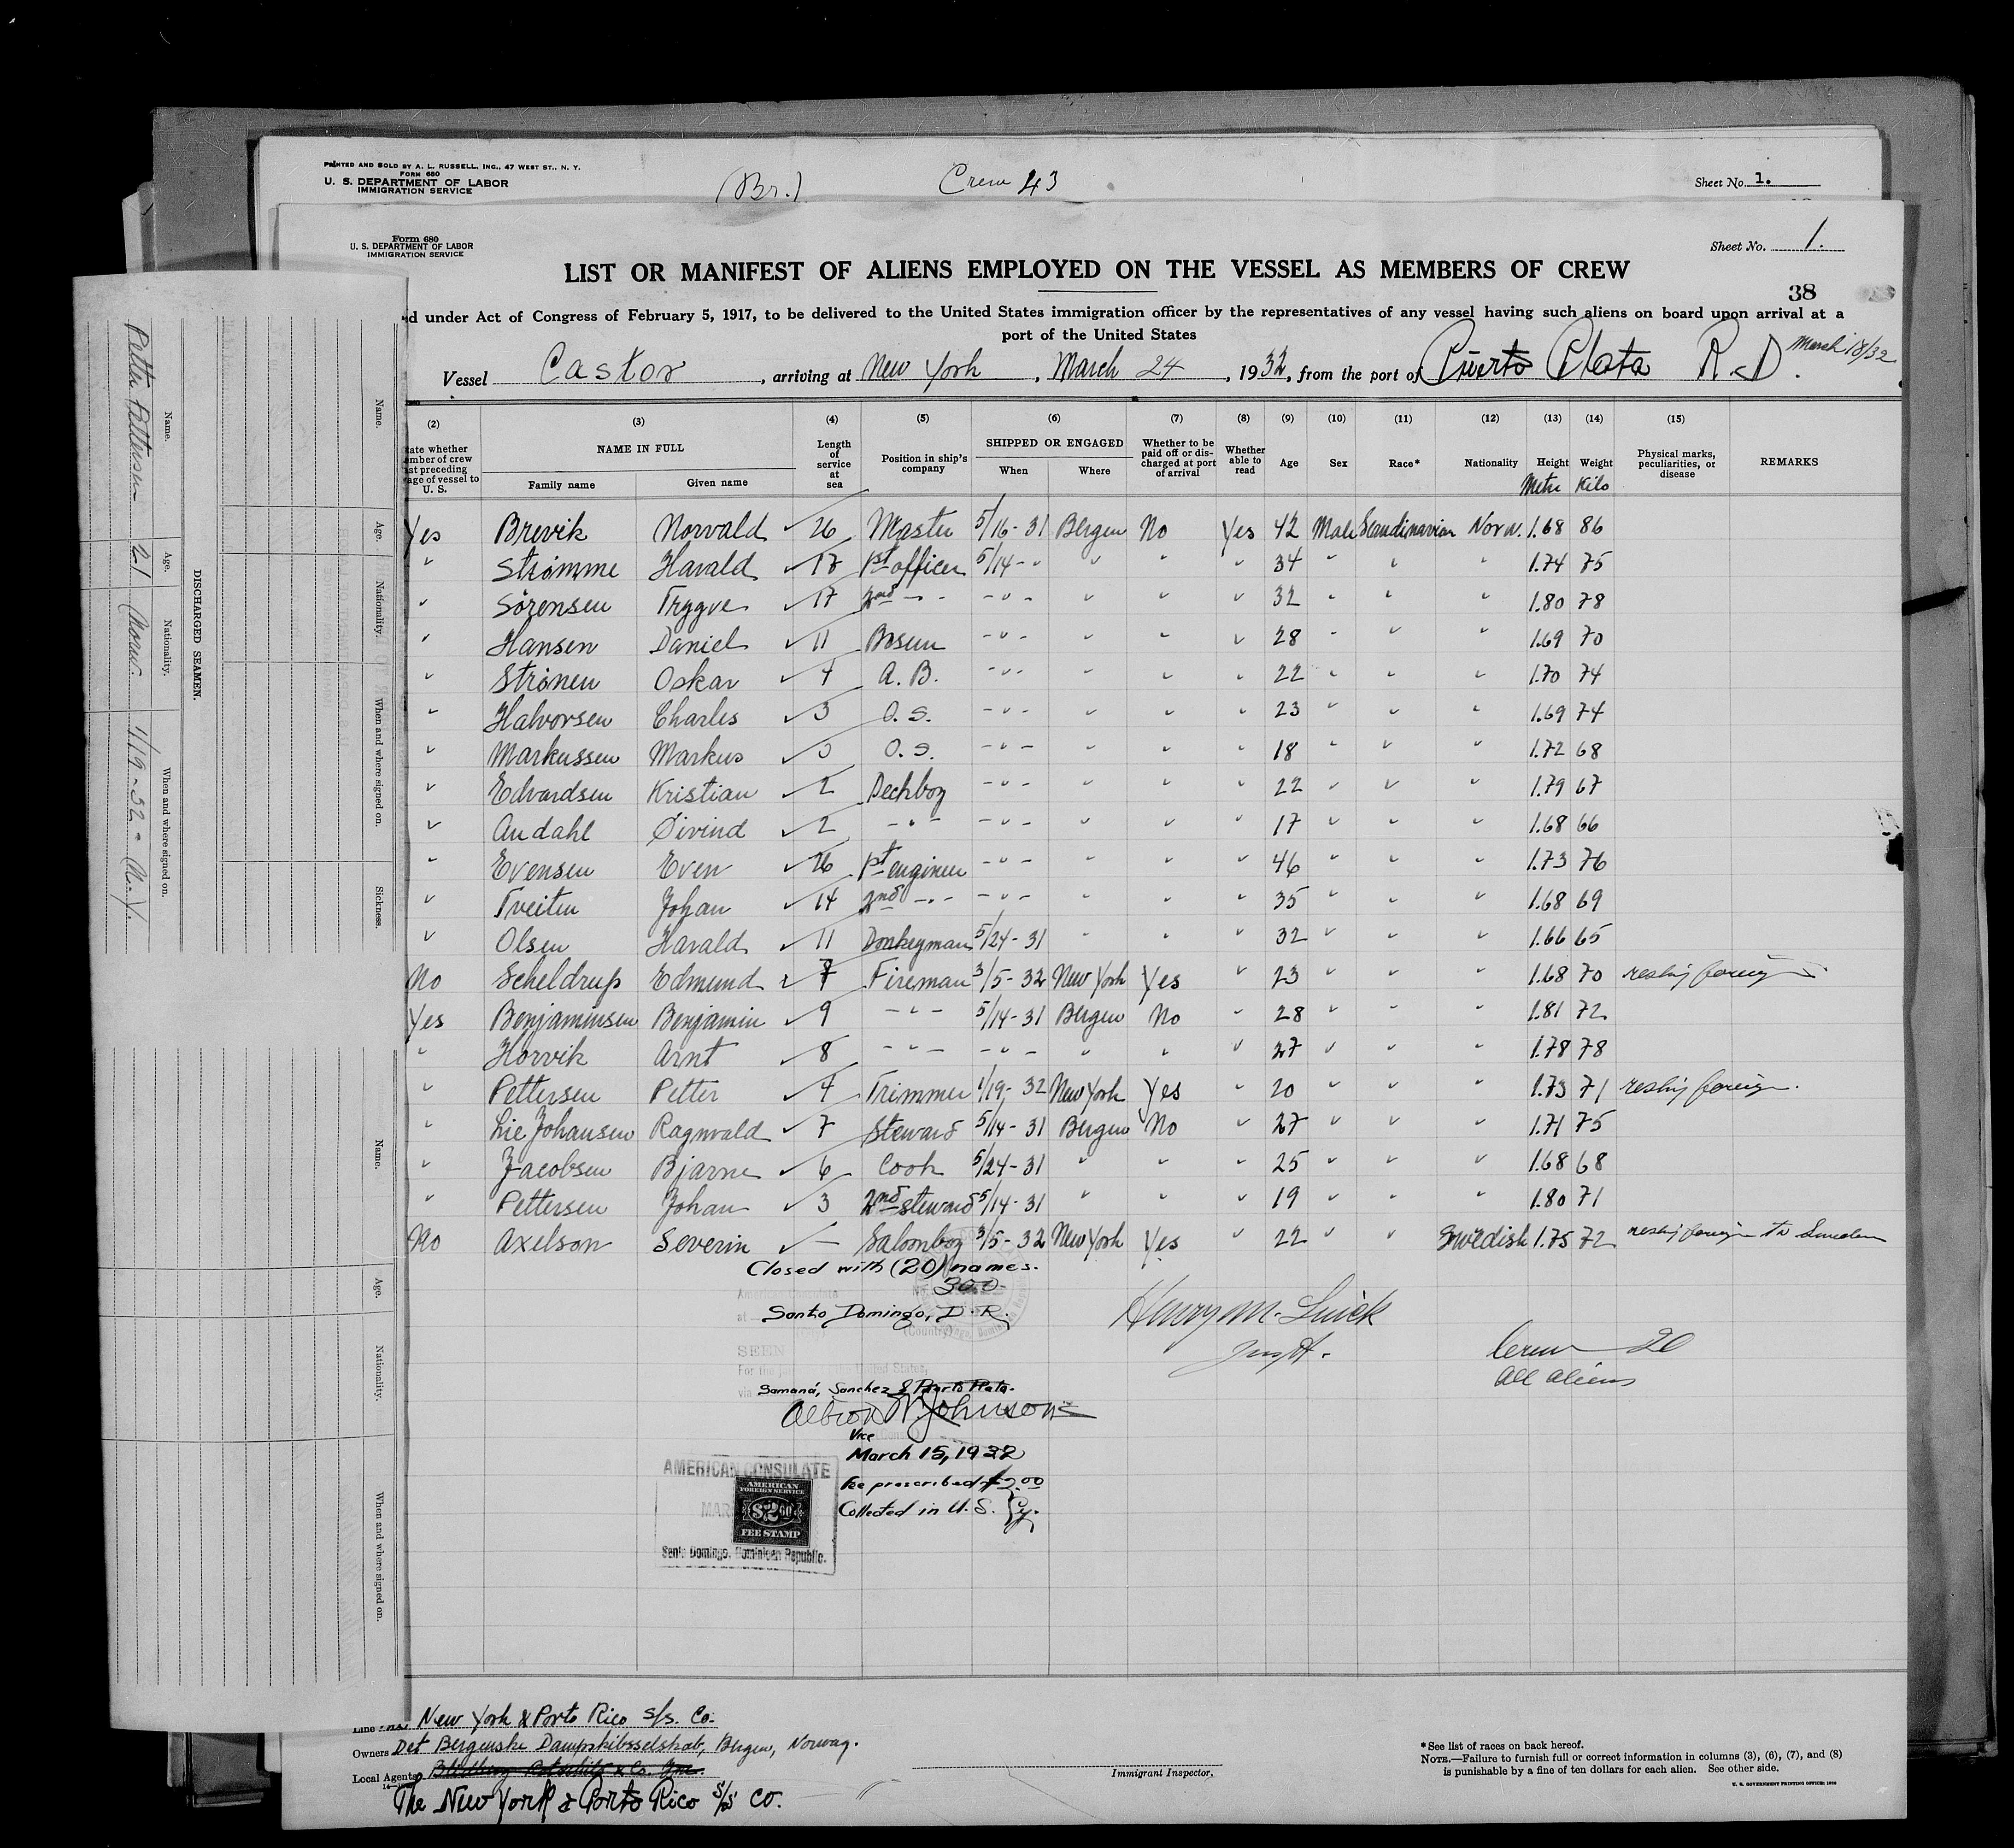 PRINTED AND SOLD BY A. L. RUSSELL, INC., 47 WEST ST., N. Y.
FORM 680
U. S. DEPARTMENT OF LABOR
IMMIGRATION SERVICE
(Br.) Crew 43
Sheet No. 1.
Form 680
U. S. DEPARTMENT OF LABOR
IMMIGRATION SERVICE
Sheet No. 1.
LIST OR MANIFEST OF ALIENS EMPLOYED ON THE VESSEL AS MEMBERS OF CREW
38
d under Act of Congress of February 5, 1917, to be delivered to the United States immigration officer by the representatives of any vessel having such aliens on board upon arrival at a
port of the United States
Vessel Castor, arriving at New York, March 24, 1932, from the port of Puerto Plata R.D. March 18/32
(2) (3) (4) (5) (6) (7) (8) (9) (10) (11) (12) (13) (14) (15)
ate whether
mber of crew
st preceding
age of vessel to
U. S.
NAME IN FULL
Family name Given name
Length
of
service
at
sea
Position in ship's
company
SHIPPED OR ENGAGED
When Where
Whether to be
paid off or dis-
charged at port
of arrival
Whether
able to
read
Age Sex Race* Nationality
Height Metre
Weight Kilo
Physical marks,
peculiarities, or
disease
REMARKS
Yes Brevik Norvald ✓ 26 Master 5/16-31 Bergen No Yes 42 Male Scandinavian Norw. 1.68 86
" Strømme Harald ✓ 17 1st officer 5/14-" " " " 34 " " " 1.74 75
" Sörensen Trygve ✓ 17 2nd -"- -"- " " " 32 " " " 1.80 78
" Hansen Daniel ✓ 11 Bosun -"- " " " 28 " " " 1.69 70
" Strønen Oskar ✓ 4 A. B. -"- " " " 22 " " " 1.70 74
" Halvorsen Charles ✓ 3 O. S. -"- " " " 23 " " " 1.69 74
" Markussen Markus ✓ O. S. -"- " " " 18 " " " 1.72 68
" Edvardsen Kristian ✓ 2 Deckboy -"- " " " 22 " " " 1.79 67
" Andahl Øivind ✓ 2 -"- -"- " " " 17 " " " 1.68 66
" Evensen Even ✓ 26 1st engineer -"- " " " 46 " " " 1.73 76
" Tveiten Johan ✓ 14 2nd -"- -"- " " " 35 " " " 1.68 69
" Olsen Harald ✓ 11 Donkeyman 5/24-31 " " " 32 " " " 1.66 65
No Scheldrup Edmund ✓ 7 Fireman 3/5-32 New York Yes " 23 " " " 1.68 70 reship foreign
Yes Benjaminsen Benjamin ✓ 9 -"- 5/14-31 Bergen No " 28 " " " 1.81 72
" Horvik Arnt ✓ 8 -"- -"- " " " 27 " " " 1.78 78
" Pettersen Petter ✓ 4 Trimmer 1/19-32 New York Yes " 20 " " " 1.73 71 reship foreign.
" Lie Johansen Ragnvald ✓ 7 Steward 5/14-31 Bergen No " 27 " " " 1.71 75
" Jacobsen Bjarne ✓ 6 Cook 5/24-31 " " " 25 " " " 1.68 68
" Pettersen Johan ✓ 3 2nd steward 5/14-31 " " " 19 " " " 1.80 71
No Axelson Severin ✓ — Saloonboy 3/5-32 New York Yes " 22 " " Swedish 1.75 72 reship foreign to Sweden
Closed with (20) names.
300
American Consulate
at Santo Domingo, D. R.
(Country)
SEEN
For the United States,
via Samaná, Sanchez & Puerto Plata.
Albion W. Johnson
Vice
March 15, 1932
Fee prescribed $2.00
Collected in U. S. Cy.
AMERICAN CONSULATE
MAR
AMERICAN
FOREIGN SERVICE
$2.00
FEE STAMP
Santo Domingo, Dominican Republic.
Crew 20
All aliens
Line New York & Porto Rico S/S. Co.
Owners Det Bergenske Dampskibsselskab, Bergen, Norway.
Local Agents
The New York & Porto Rico S/S Co.
Immigrant Inspector.
* See list of races on back hereof.
NOTE.—Failure to furnish full or correct information in columns (3), (6), (7), and (8)
is punishable by a fine of ten dollars for each alien. See other side.
U. S. GOVERNMENT PRINTING OFFICE: 1930
DISCHARGED SEAMEN.
Name. Age. Nationality. When and where signed on.
Petter Pettersen 21 Norw. 1/19-32 - N. Y.
Name. Age. Nationality. When and where signed on. Sickness.
Name. Age. Nationality. When and where signed on.